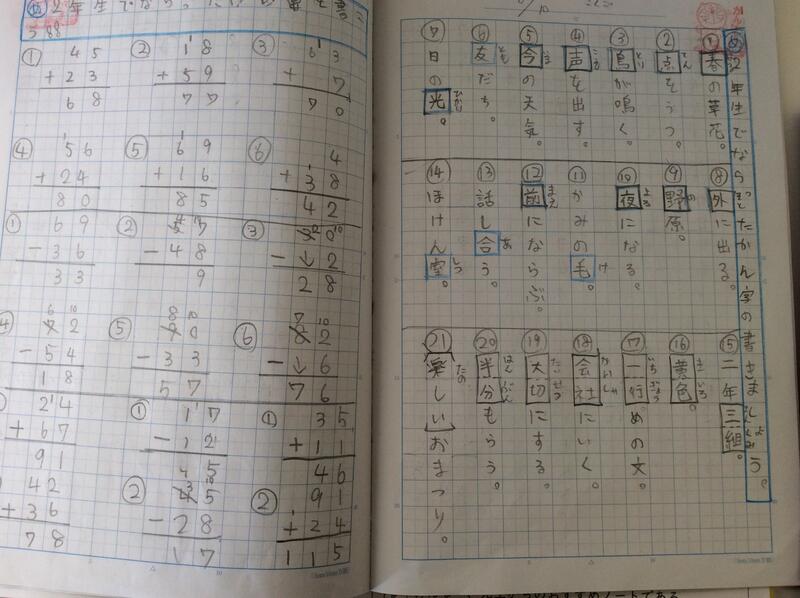 2年生でなら
① 45
+23
68
② 18
+59
77
③ 63
+ 7
70
④ 56
+24
80
⑤ 69
+16
85
⑥ 4
+38
42
① 69
-36
33
② 57
-48
9
③ 30
-↓2
28
④ 72
-54
18
⑤ 90
-33
57
⑥ 82
-↓6
76
24
+67
91
42
+36
78
① 17
-12
5
② 45
-28
17
① 35
+11
46
② 91
+24
115
年生でならったかん字の書きましょう。
①春の草花。
②点をうつ。
③鳥が鳴く。
④声を出す。
⑤今の天気。
⑥友だち。
⑦日の光。
⑧外に出る。
⑨野原。
⑩夜になる。
⑪かみの毛。
⑫前にならぶ。
⑬話し合う。
⑭ほけん室。
⑮二年三組。
⑯黄色。
⑰一行めの文。
⑱会社にいく。
⑲大切にする。
⑳半分もらう。
㉑楽しいおまつり。